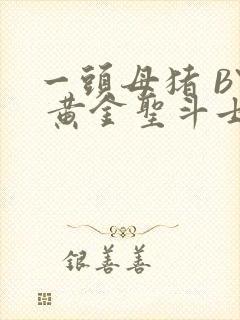 一頭母猪 BY
黄金聖斗士
銀善善